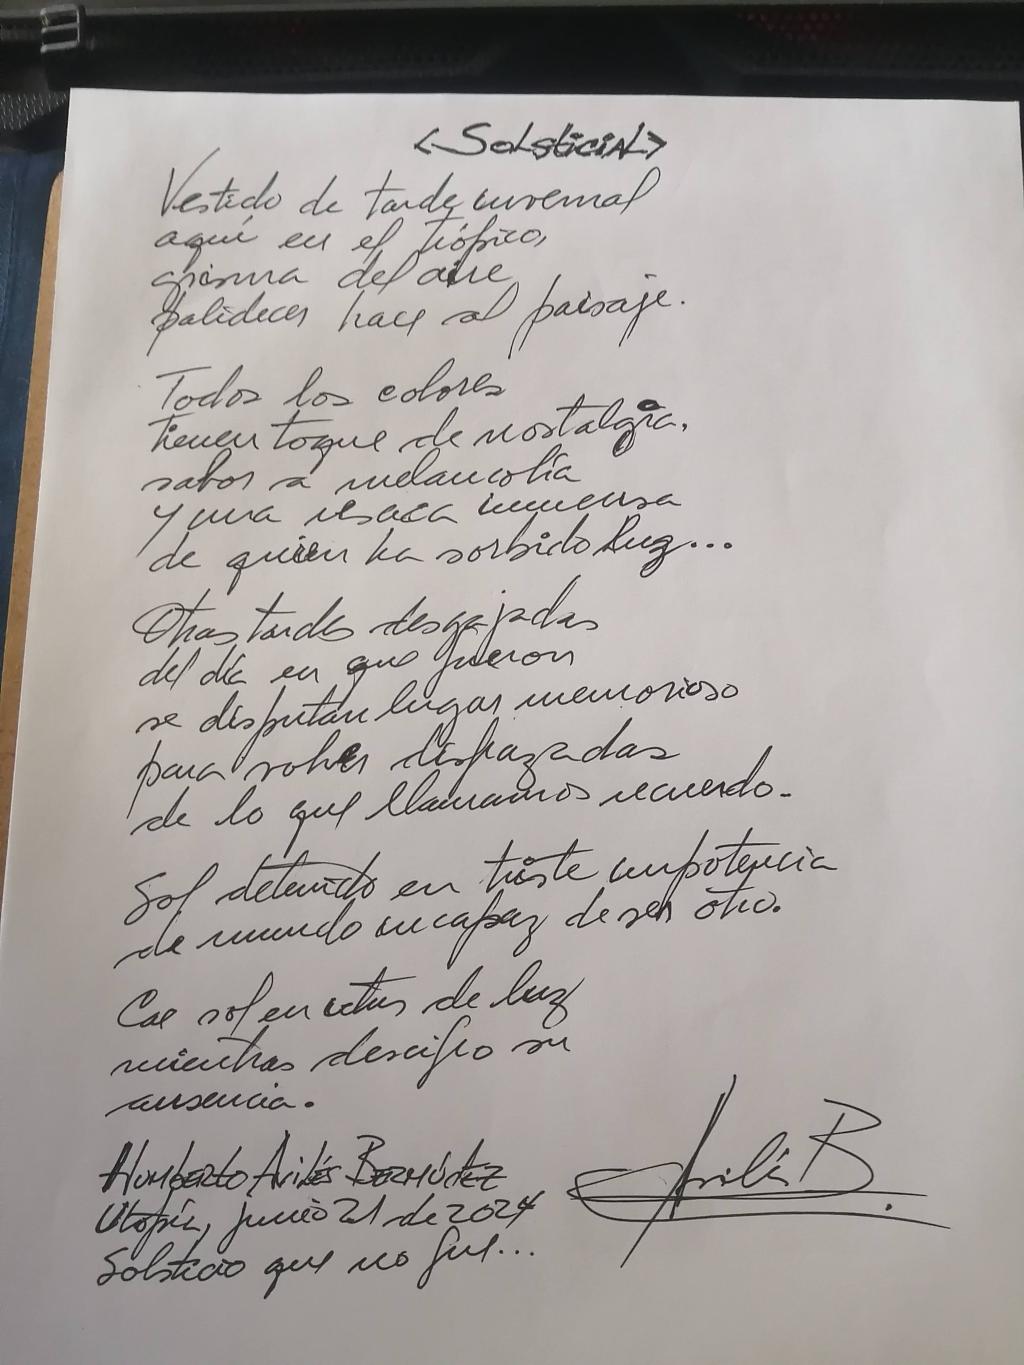 <Solsticial>
Vestido de tarde invernal
aquí en el trópico,
grisura del aire
palidecer hace al paisaje.
Todos los colores
tienen toque de nostalgia,
sabor a melancolía
y una resaca inmensa
de quien ha sorbido luz...
Otras tardes desgajadas
del día en que fueron
se disputan lugar memorioso
para volver disfrazadas
de lo que llamamos recuerdo.
Sol detenido en triste impotencia
de mundo incapaz de ser otro.
Cae sol en de luz
mientras descifro su
ausencia.
Humberto Avilés Bermúdez
Utopía, junio 21 de 2024
Solsticio que no fue...
Avilés B.